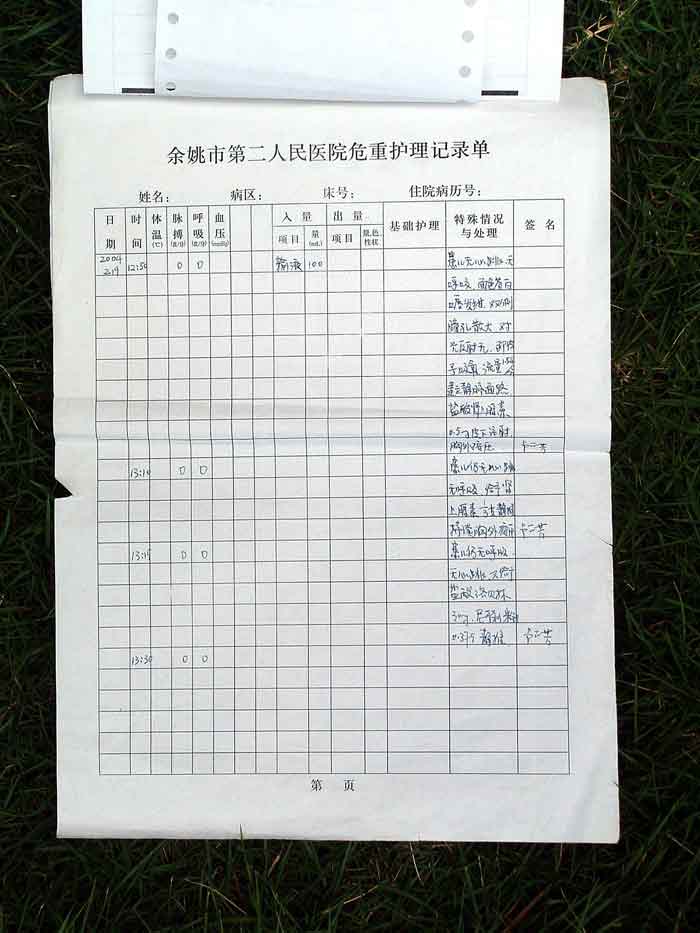 余姚市第二人民医院危重护理记录单
姓名： 病区： 床号： 住院病历号：
日期 时间 体温(℃) 脉搏(次/分) 呼吸(次/分) 血压(mmHg) 入量 出量 基础护理 特殊情况与处理 签名
项目 量(mL) 项目 量,色性状
2004
2.19 12:50 0 0 输液 100 患儿无心跳、无
呼吸，面色苍白
瞳孔散大，对
光反射无，即给
盐酸肾上腺素
0.5mg 皮下注射
胸外按压
13:10 0 0 患儿仍无心跳
无呼吸，给予肾
上腺素
胸外按压
13:15 0 0 患儿仍无呼吸
无心跳，又给予
盐酸洛贝林
3mg，尼可刹米
0.375 静推
13:30 0 0
第 页